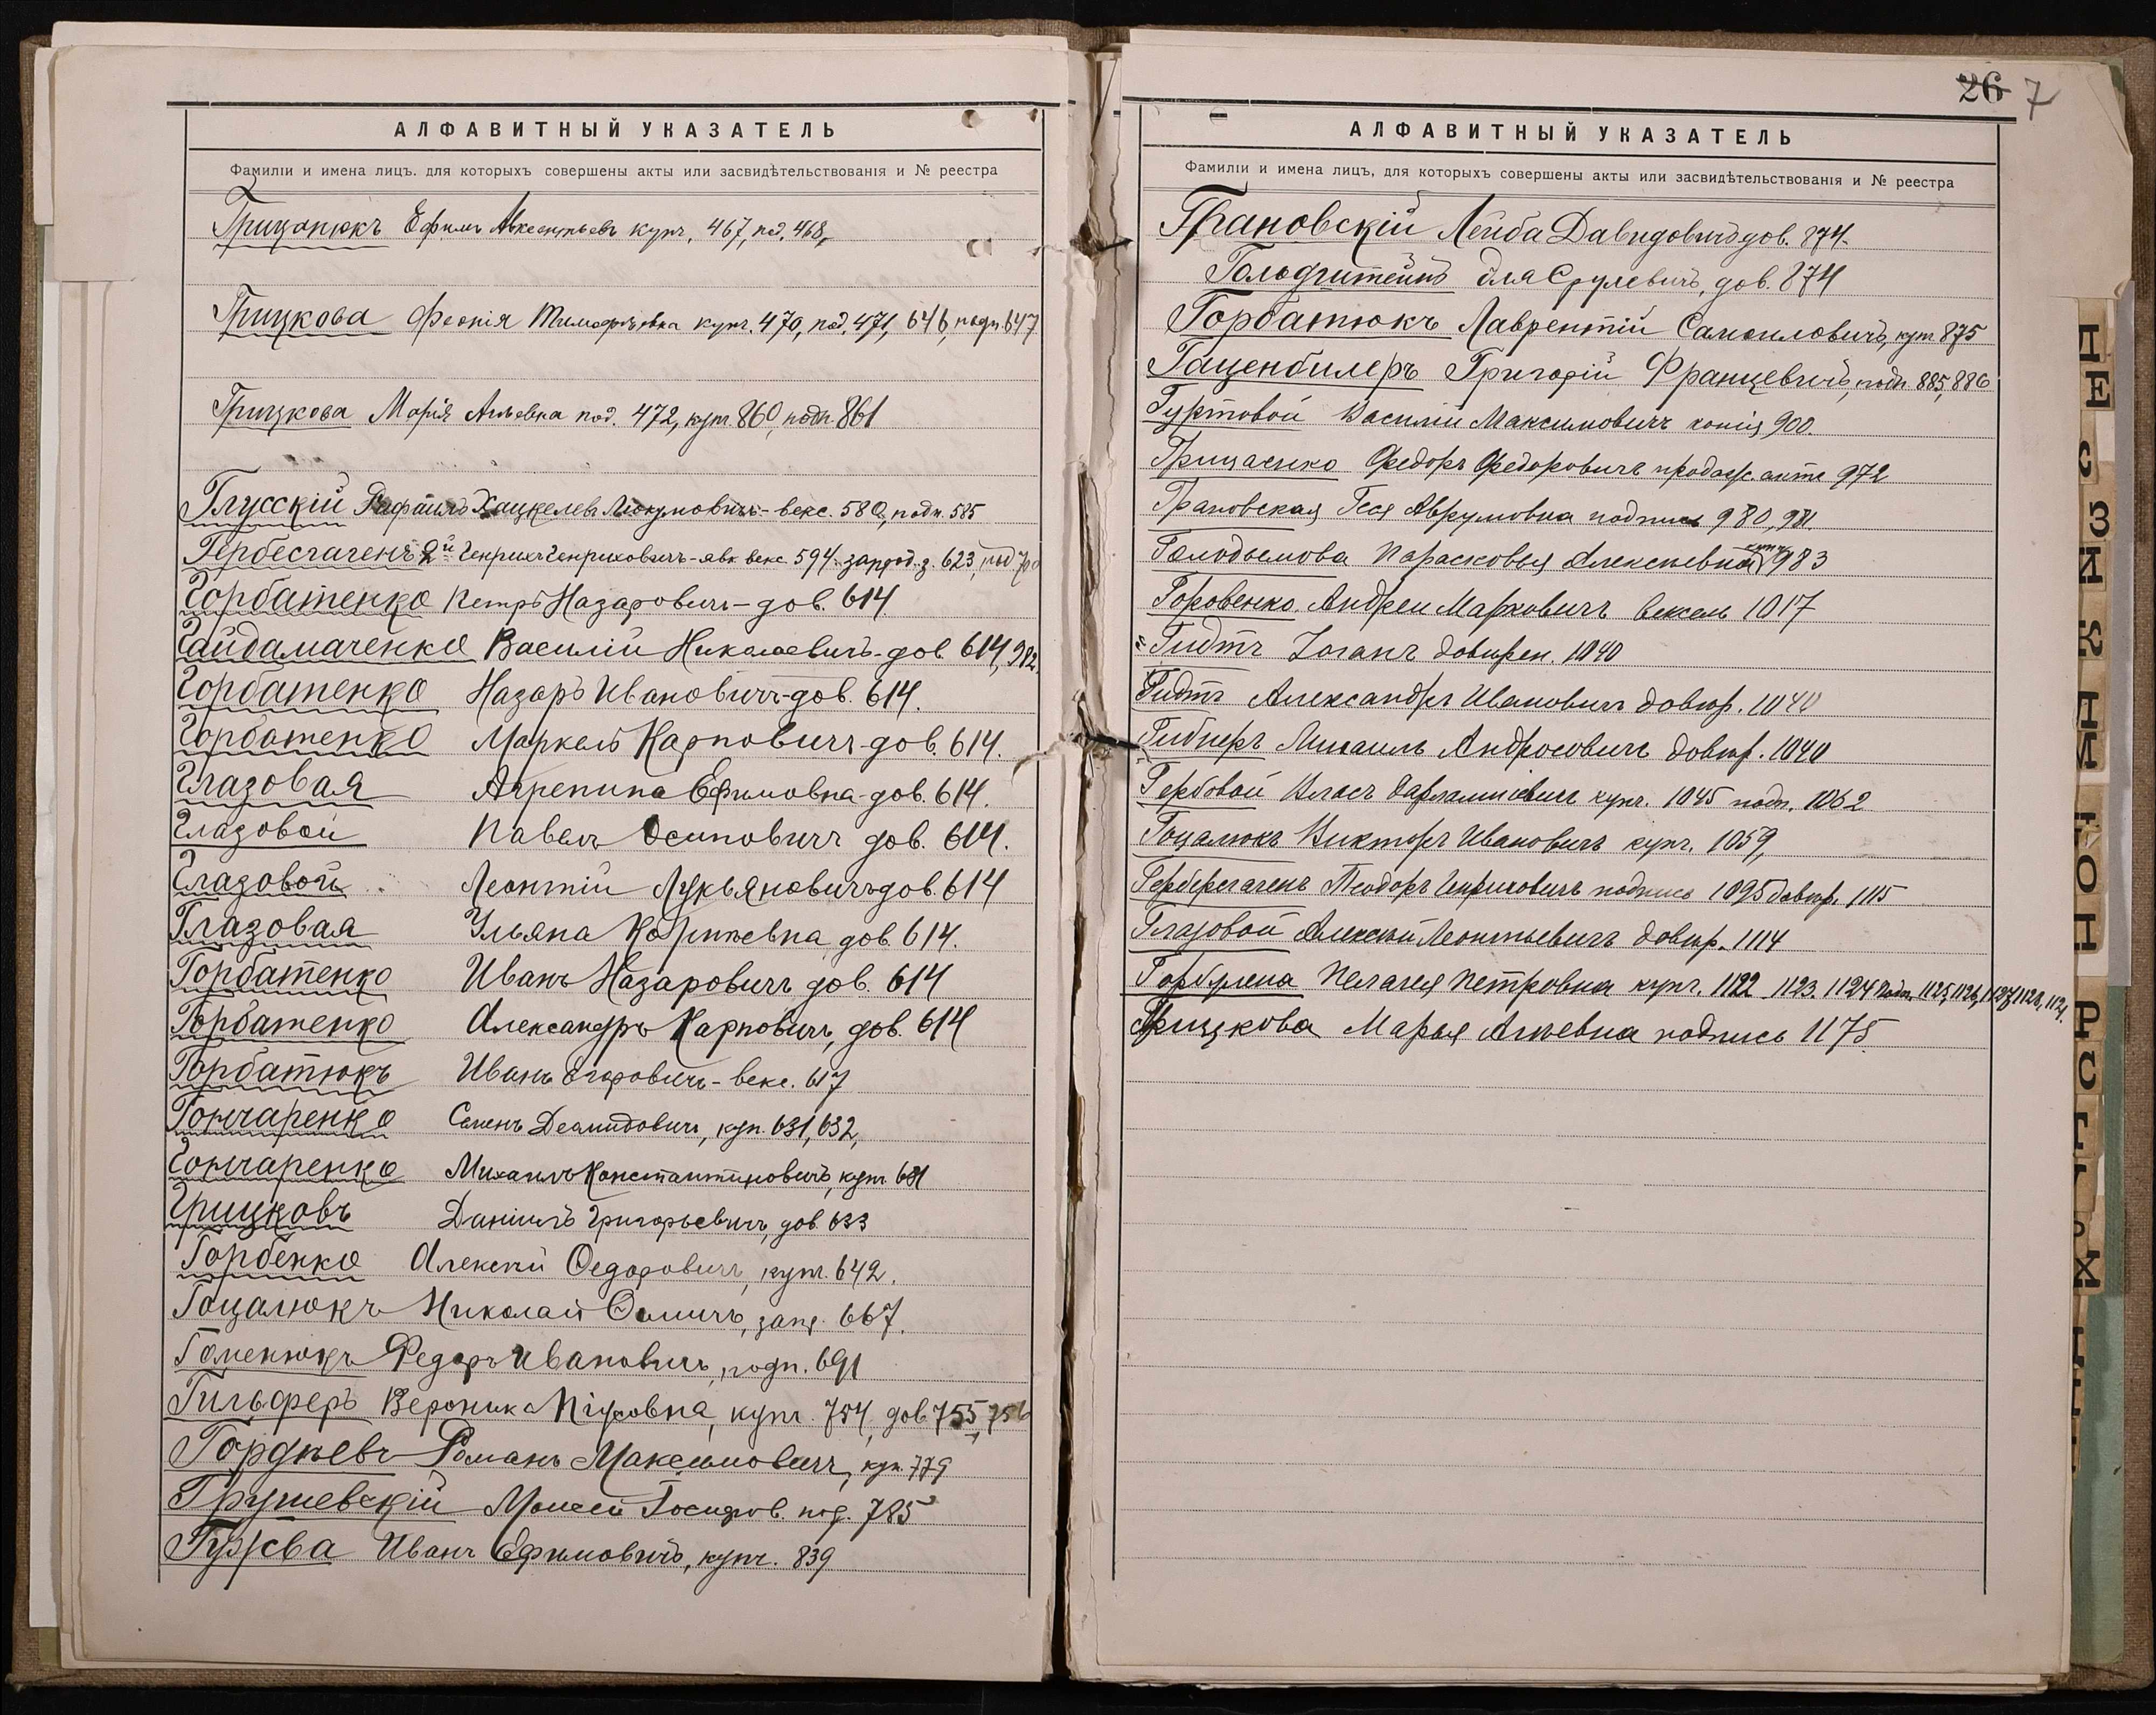 АЛФАВИТНЫЙ УКАЗАТЕЛЬ
Фамиліи и имена лицъ, для которыхъ совершены акты или засвидѣтельствованія и № реестра
Грицанюкъ Ефимъ Авксентьевъ купч. 467, под. 468,
Грицкова Феонія Тимофѣевна купч. 470, под. 471, 646, подп. 647
Грицкова Марія Агѣевна под. 472, купч. 860, подп. 861
Глусскій Рафаилъ Хацкелев - векс. 580, подп. 585
2й Генрихъ Генриховичъ - явк. векс. 594. 623, под 700
Горбатенко Петръ Назаровичъ - дов. 614.
Гайдамаченко Василій Николаевичъ - дов. 614, 982.
Горбатенко Назаръ Ивановичъ - дов. 614.
Горбатенко Маркелъ Карповичъ - дов. 614.
Глазовая Агрепина Ефимовна - дов. 614.
Глазовой Павелъ Осиповичъ дов. 614.
Глазовой Леонтій Лукьяновичъ дов. 614
Глазовая Ульяна Корнѣевна дов. 614.
Горбатенко Иванъ Назаровичъ дов. 614
Горбатенко Александръ Карповичъ, дов. 614
Горбатюкъ Иванъ Егоровичъ - векс. 617
Гончаренко Семенъ Демидовичъ, куп. 631, 632,
Гончаренко Михаилъ Константиновичъ, купч 631
Грицковъ Даніилъ Григорьевичъ, дов. 633
Горбенко Алексѣй Федоровичъ, купч. 642.
Гоцалюкъ Николай 667.
Гоменюкъ Федоръ Ивановичъ, подп. 691
Гильферъ Вероника Піусовна, купч. 754, дов. 755, 756
Гордѣевъ Романъ Максимовичъ, куп. 779
Грушевскій Моисей под. 785
Гужва Иванъ Ефимовичъ, купч. 839
26 7
АЛФАВИТНЫЙ УКАЗАТЕЛЬ
Фамиліи и имена лицъ, для которыхъ совершены акты или засвидѣтельствованія и № реестра
Грановскій Лейба Давидовичъ дов. 874.
Гольдштейнъ Эля Срулевичъ, дов. 874
Горбатюкъ Лаврентій Самойловичъ, купч 875
Гаценбилеръ Григорій Францевичъ, подп. 885, 886
Гуртовой Василій Максимовичъ копія 900.
Грицаенко Федоръ Федоровичъ продаж. актъ 972
Грановская Геся Аврумовна подпись 980, 981.
Голодымова Парасковья Алексѣевна купч 983
Горовенко Андрей Марковичъ вексель 1017
Гидтъ Іоганъ довѣрен. 1040
Гидтъ Александръ Ивановичъ довѣр. 1040
Гибнеръ Михаилъ Андр довѣр. 1040
Гербовой Власъ Варламовичъ купч. 1045 подп. 1062
Гоцалюкъ Викторъ Ивановичъ купч. 1059,
Теодоръ Генриховичъ подпись 1095 довѣр. 1115
Глазовой Алексѣй Леонтьевичъ довѣр. 1114
Пелагея Петровна купч. 1122 1123. 1124 подп. 1125, 1126, 1127, 1128, 1129.
Грицкова Марья Агѣевна подпись 1175